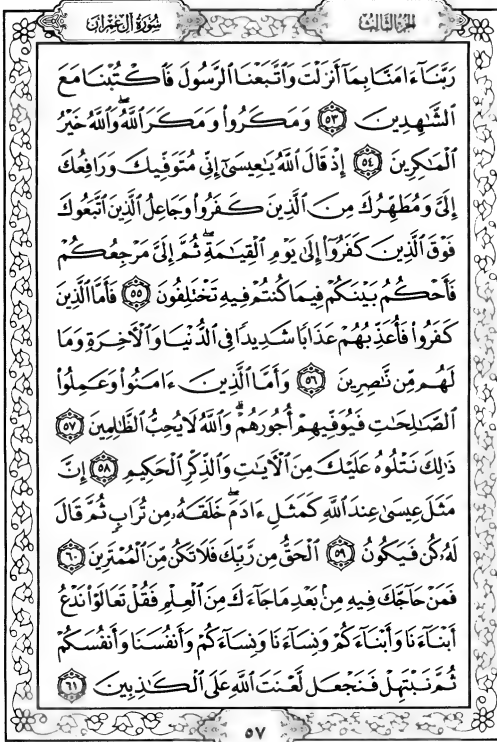 سُورَةُ آلِ عِمْرَان
الجزء الثالث
رَبَّنَآ ءَامَنَّا بِمَآ أَنزَلْتَ وَٱتَّبَعْنَا ٱلرَّسُولَ فَٱكْتُبْنَا مَعَ
ٱلشَّٰهِدِينَ ٥٣ وَمَكَرُوا۟ وَمَكَرَ ٱللَّهُۖ وَٱللَّهُ خَيْرُ
ٱلْمَٰكِرِينَ ٥٤ إِذْ قَالَ ٱللَّهُ يَٰعِيسَىٰٓ إِنِّى مُتَوَفِّيكَ وَرَافِعُكَ
إِلَىَّ وَمُطَهِّرُكَ مِنَ ٱلَّذِينَ كَفَرُوا۟ وَجَاعِلُ ٱلَّذِينَ ٱتَّبَعُوكَ
فَوْقَ ٱلَّذِينَ كَفَرُوٓا۟ إِلَىٰ يَوْمِ ٱلْقِيَٰمَةِۖ ثُمَّ إِلَىَّ مَرْجِعُكُمْ
فَأَحْكُمُ بَيْنَكُمْ فِيمَا كُنتُمْ فِيهِ تَخْتَلِفُونَ ٥٥ فَأَمَّا ٱلَّذِينَ
كَفَرُوا۟ فَأُعَذِّبُهُمْ عَذَابًا شَدِيدًا فِى ٱلدُّنْيَا وَٱلْءَاخِرَةِ وَمَا
لَهُم مِّن نَّٰصِرِينَ ٥٦ وَأَمَّا ٱلَّذِينَ ءَامَنُوا۟ وَعَمِلُوا۟
ٱلصَّٰلِحَٰتِ فَيُوَفِّيهِمْ أُجُورَهُمْۗ وَٱللَّهُ لَا يُحِبُّ ٱلظَّٰلِمِينَ ٥٧
ذَٰلِكَ نَتْلُوهُ عَلَيْكَ مِنَ ٱلْءَايَٰتِ وَٱلذِّكْرِ ٱلْحَكِيمِ ٥٨ إِنَّ
مَثَلَ عِيسَىٰ عِندَ ٱللَّهِ كَمَثَلِ ءَادَمَۖ خَلَقَهُۥ مِن تُرَابٍ ثُمَّ قَالَ
لَهُۥ كُن فَيَكُونُ ٥٩ ٱلْحَقُّ مِن رَّبِّكَ فَلَا تَكُن مِّنَ ٱلْمُمْتَرِينَ ٦٠
فَمَنْ حَآجَّكَ فِيهِ مِنۢ بَعْدِ مَا جَآءَكَ مِنَ ٱلْعِلْمِ فَقُلْ تَعَالَوْا۟ نَدْعُ
أَبْنَآءَنَا وَأَبْنَآءَكُمْ وَنِسَآءَنَا وَنِسَآءَكُمْ وَأَنفُسَنَا وَأَنفُسَكُمْ
ثُمَّ نَبْتَهِلْ فَنَجْعَل لَّعْنَتَ ٱللَّهِ عَلَى ٱلْكَٰذِبِينَ ٦١
٥٧